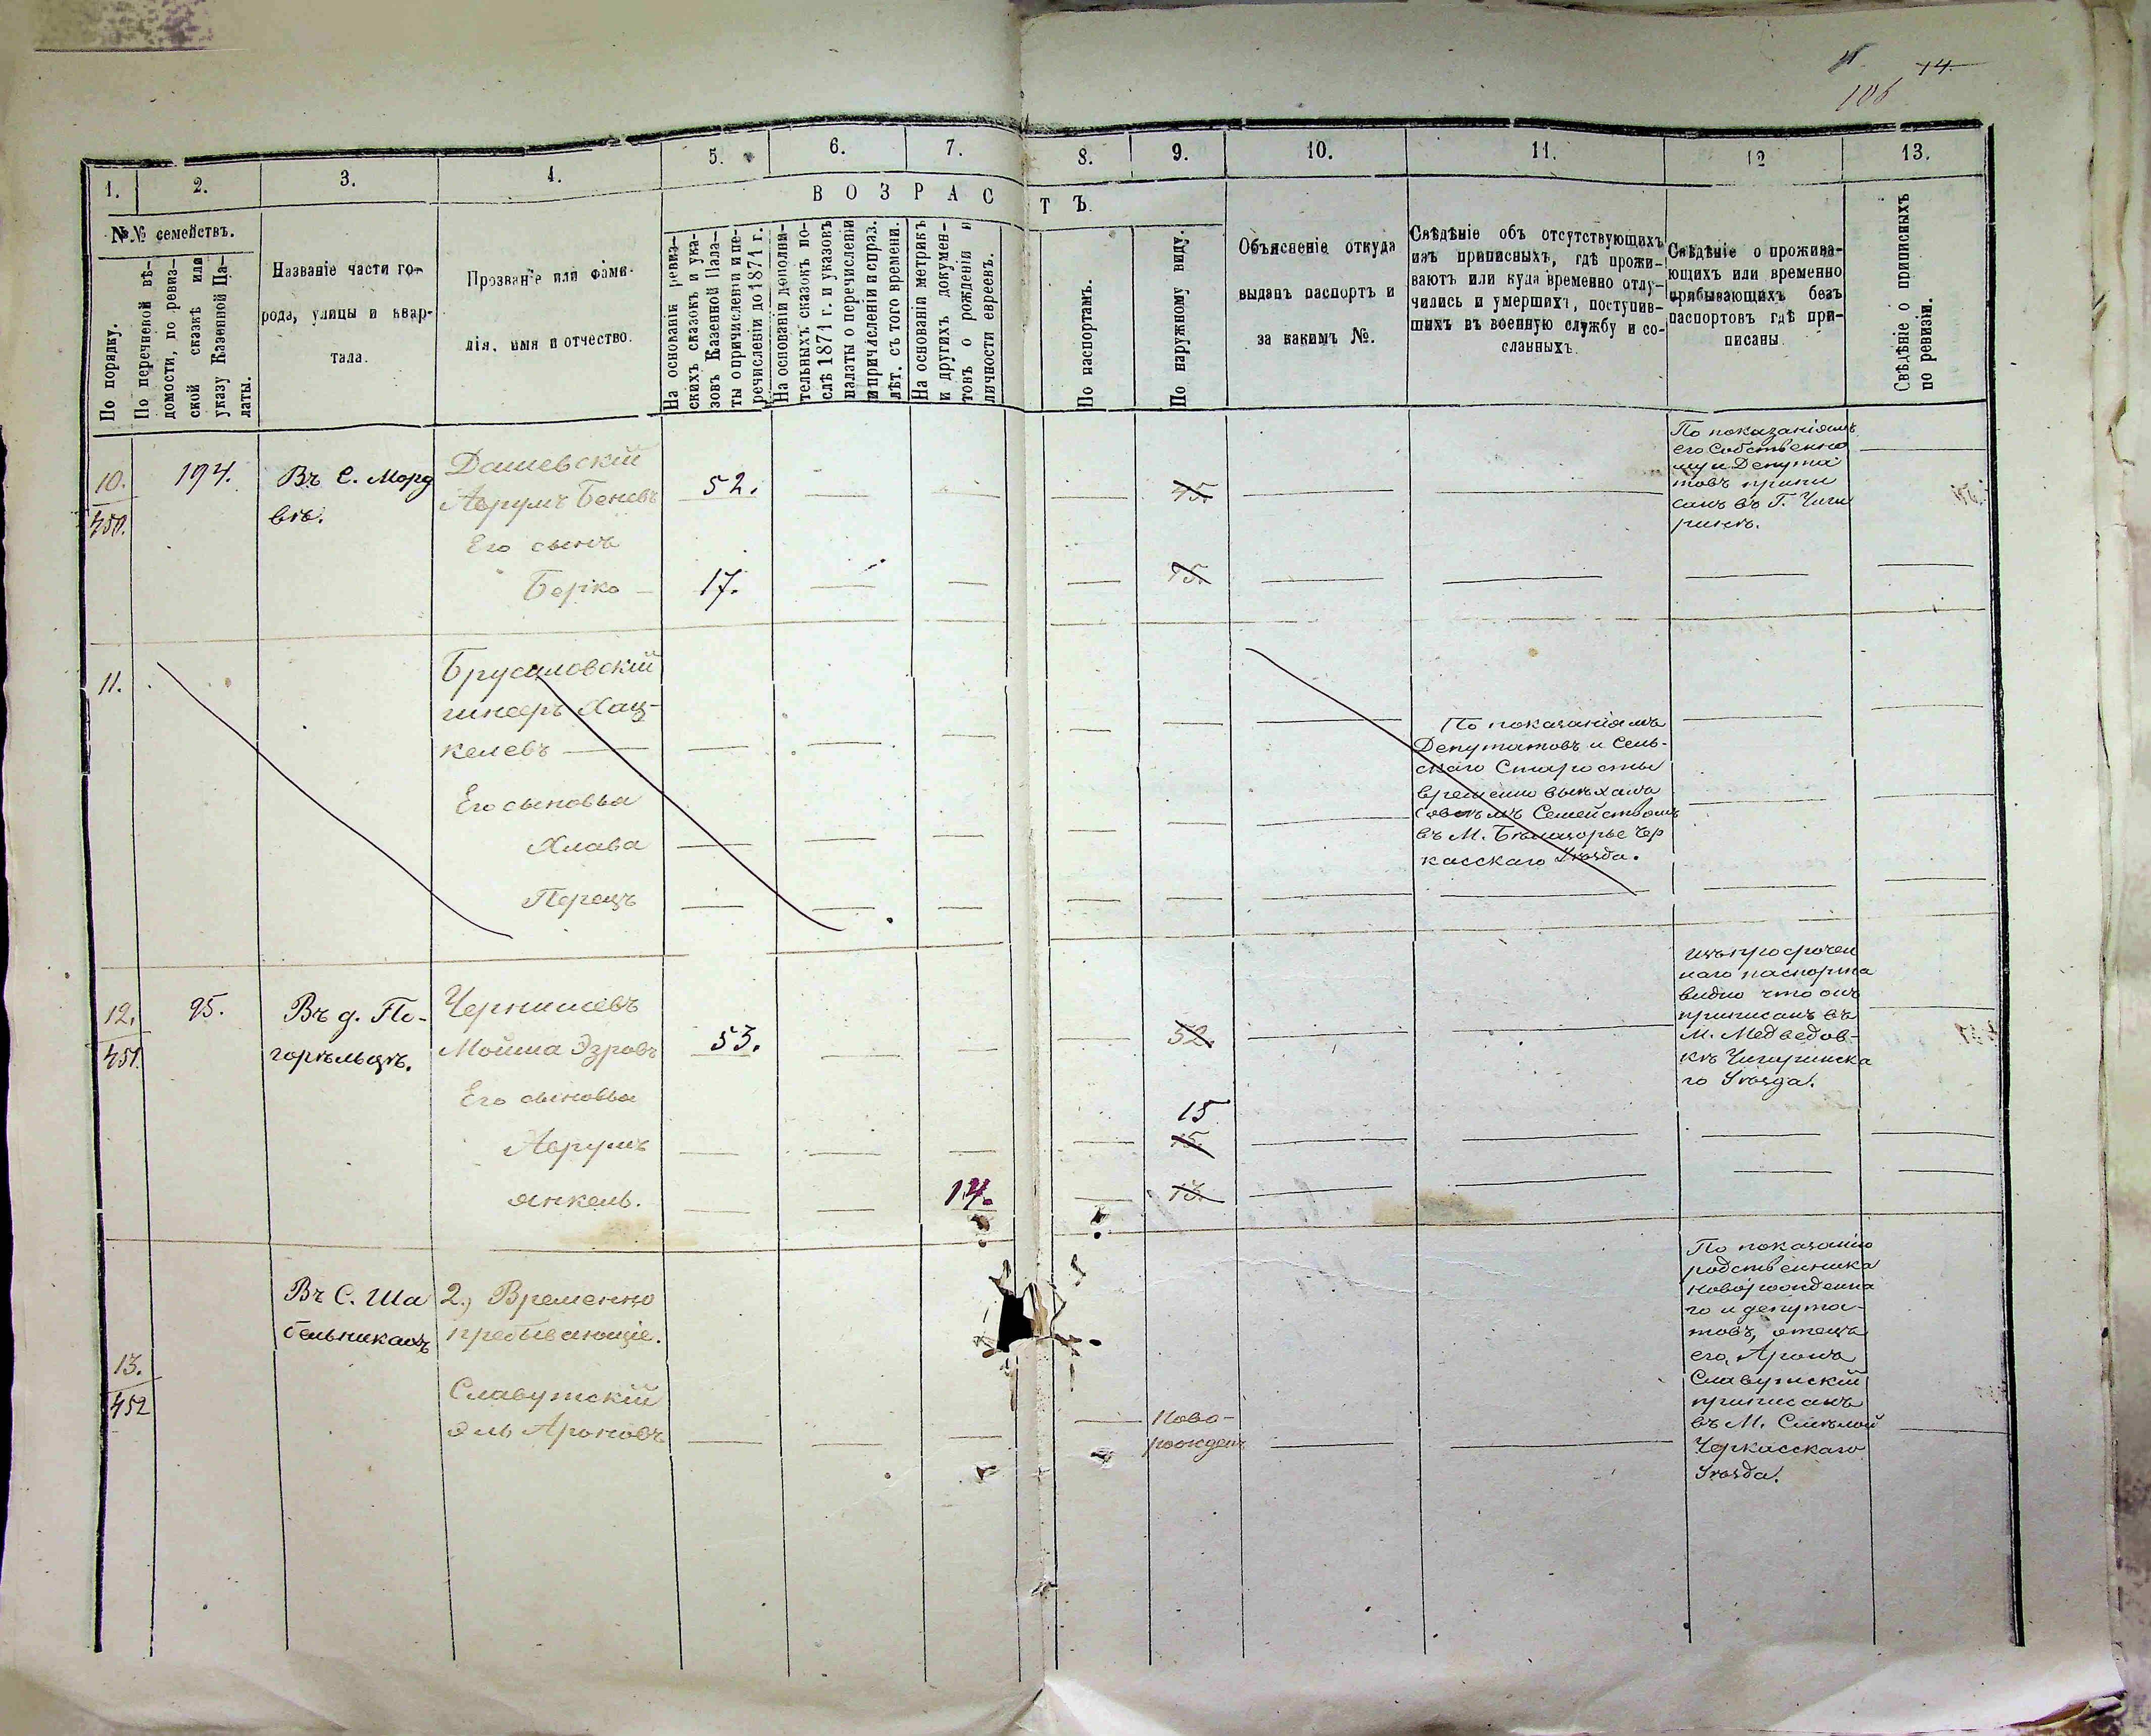 11. 14.
106
1. 2. 3. 4. 5. 6. 7. 8. 9. 10. 11. 12 13.
В О З Р А С Т Ъ.
№№ семействъ.
По порядку.
По перечневой вѣ-
домости, по ревиз-
ской сказкѣ или
указу Казенной Па-
латы.
Названіе части го-
рода, улицы и квар-
тала.
Прозваніе или фами-
лія, имя и отчество.
На основаніи ревиз-
скихъ сказокъ и ука-
зовъ Казенной Пала-
ты о причисленіи и пе-
речисленіи до 1871 г.
На основаніи дополни-
тельныхъ сказокъ по-
слѣ 1871 г. и указовъ
палаты о перечисленіи
и причисленіи и спраз.
лѣт. съ того времени.
На основаніи метрикъ
и другихъ докумен-
товъ о рожденіи и
личности евреевъ.
По паспортамъ.
По наружному виду.
Объясненіе откуда
выданъ паспортъ и
за какимъ №.
Свѣдѣніе объ отсутствующихъ
изъ приписныхъ, гдѣ прожи-
ваютъ или куда временно отлу-
чились и умершихъ, поступив-
шихъ въ военную службу и со-
сланныхъ
Свѣдѣніе о прожива-
ющихъ или временно
прибывающихъ безъ
паспортовъ гдѣ при-
писаны
Свѣдѣніе о приписныхъ
по ревизіи.
10.
450.
194.
Въ С. Морд
вѣ.
Дашевскій
Аврумъ Беневъ
52.
45.
По показаніямъ
его Собственно
му и Депута
товъ припи
санъ въ Г. Чиги
ринѣ.
Его сынъ
Берко — 17.
15.
11.
Брусиловскій
Хац-
келевъ
Его сыновья
Хлава
Перецъ
По показаніямъ
Депутатовъ и Сель-
скаго Старосты
временно выѣхалъ
Совсѣмъ Семействомъ
въ М. Бѣлазорье Чер
касскаго Уѣзда.
12.
451.
95.
Въ д. По-
горѣльцѣ.
Чернишевъ
Мойша Эзровъ
53.
52.
изъ просрочен
наго паспорта
видно что онъ
приписанъ въ
М. Медведов-
кѣ Чигиринска
го Уѣзда.
Его сыновья
Аврумъ
15
15.
Янкель.
14.
13.
13.
452
Въ С. Ша
бельникахъ
2.) Временно
пребывающіе.
Славутскій
Эль Ароновъ
Ново-
рожден
По показанію
родственника
новорожденна
го и депута-
товъ, отецъ
его, Аронъ
Славутскій
приписанъ
въ М. Смѣлой
Черкасскаго
Уѣзда.